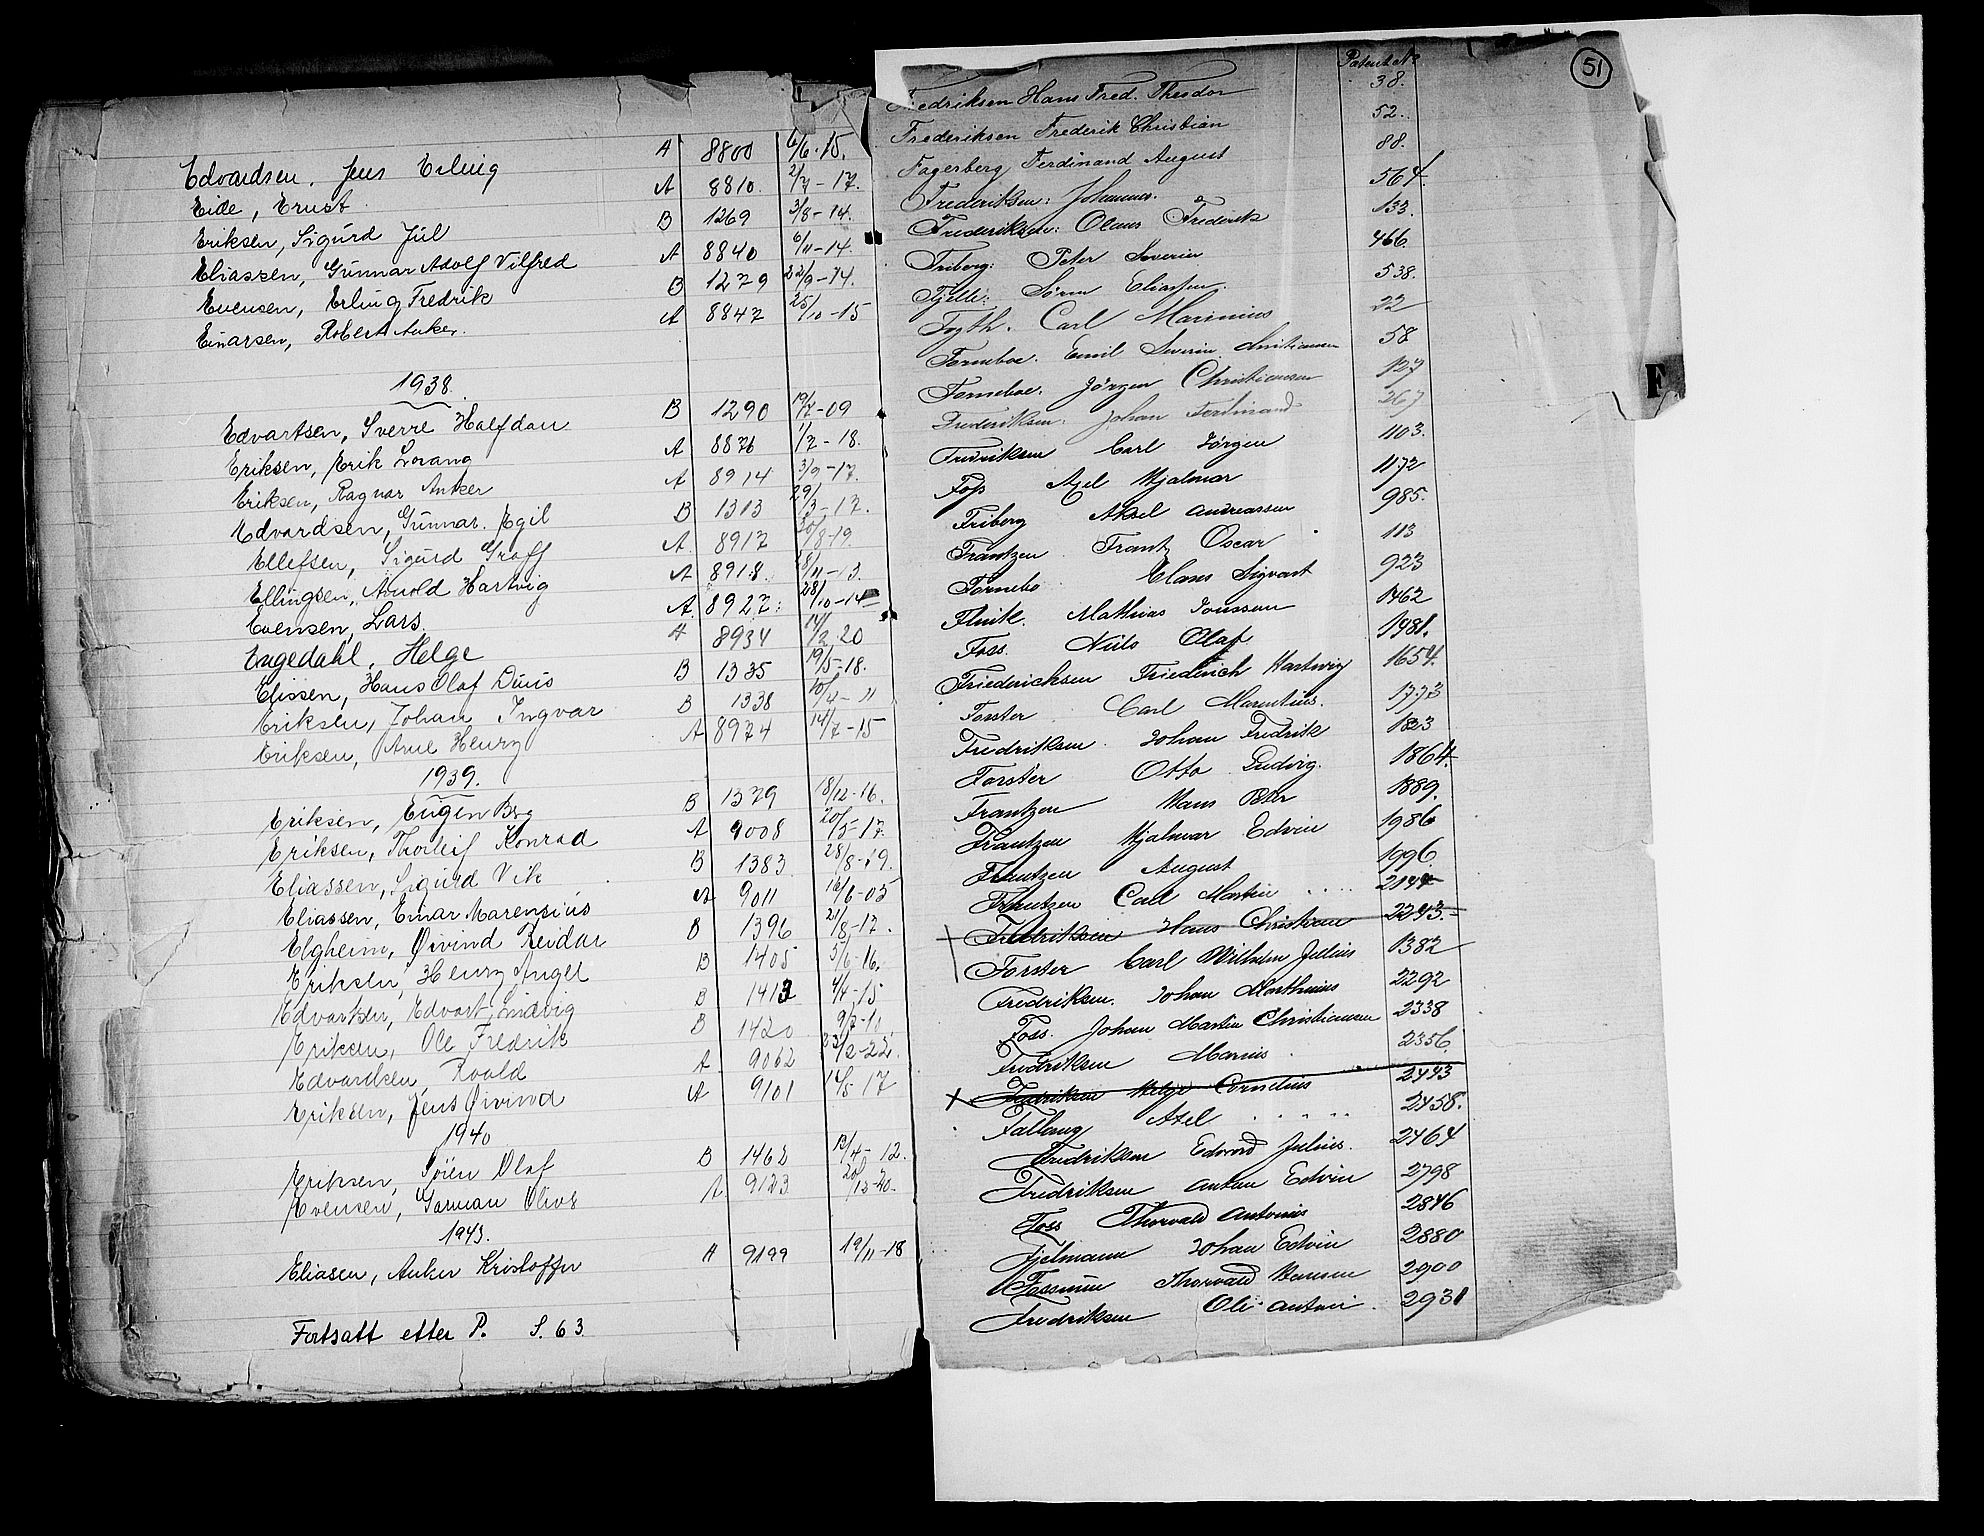 Edvardsen, Jens Erling A 8800 6/6-15.
Eide, Ernst A 8810. 2/7-17.
Eriksen, Sigurd Jul B 1269 3/8-14.
Eliassen, Gunnar Adolf Vilfred A 8840 6/11-14.
Evensen, Erling Fredrik B 1279 22/9-14.
Einarsen, Robert Anker. A 8847 25/10-15
1938.
Edvartsen, Sverre Halfdan B 1290 19/7-09
Eriksen, Erik Lorang A 8876 1/7-18.
Eriksen, Ragnar Anker A 8914 3/9-17.
Edvardsen, Gunnar Egil B 1313 29/3-17.
Ellefsen, Sigurd Graff A 8917 30/8-19
Ellingsen, Arnold Hartvig A 8918. 18/11-13.
Evensen, Lars. A 8927. 28/10-14
Engedahl, Helge A 8934 14/2-20
Elissen, Hans Olaf Duus B 1335 19/5-18.
Eriksen, Johan Ingvar B 1338 10/4-11
Eriksen, Arne Henry A 8974 14/7-15
1939.
Eriksen, Eugen Berg B 1379 18/12-16.
Eriksen, Thorleif Konrad A 9008 20/5-17.
Eliassen, Sigurd Vik B 1383 28/8-19.
Eliassen, Einar Marensius A 9011 16/6-05
Elgheim, Øivind Reidar B 1396 21/8-17.
Eriksen, Henry Angel B 1405 5/6-16.
Edvartsen, Edvart Ludvig B 1413 4/4-15
Eriksen, Ole Fredrik B 1420 9/2-10
Edvardsen, Roald A 9062 23/2-22.
Eriksen, Jens Øivind A 9101 14/5 17
1940
Eriksen, Søren Olaf B 1462 12/4-12.
Evensen, Garman Olius A 9123 20/12-20.
1943.
Eliasen, Anker Kristoffer A 9199 19/11-18
Fortsatt etter P. S. 63
51
Patent No
Fredriksen Hans Fred. Theodor 38.
Frederiksen Frederik Christian 52.
Fagerberg Ferdinand August 88.
Frederiksen: Johannes. 564.
Frederiksen: Olaus Frederik 133.
Friberg: Peter Severin 466.
Fjelli: Søren Eliassen. 538.
Foyth. Carl Marinius 22
Forneboe. Emil Severin Christiansen 58
Forneboe. Jörgen Christiansen 127
Frederiksen. Johan Ferdinand 267
Fredriksen Carl Jörgen 1103.
Foss Axel Hjalmar 1172
Friberg Aksel Andreassen 985.
Frantzen Frantz Oscar 113
Fornebo Claus Sigvart 923
Flinth. Mathias Jonsson 1462
Foss. Niels Olaf 1481.
Friedericksen Friederich Hartvig 1654.
Forster Carl Marentius. 1773
Fredriksen Johan Fredrik 1823
Forster Otto Ludvig. 1864.
Frantzen Hans Peter 1889.
Frantzen Hjalmar Edvin 1986
Frantzen August 1996.
Frantzen Carl Martin 2144
Fredriksen Hans Christian 2243.
Forster Carl Wilhelm Julius 1382
Fredriksen. Johan Marthinius 2292
Foss. Johan Martin Christiansen 2338
Fredriksen Marius 2356.
Fredriksen Helge Cornelius 2443
Falleng Axel 2458.
Fredriksen Edvard Julius. 2464
Fredriksen Anton Edvin 2798
Foss Thorvald Antonius 2846
Fjelmann Johan Edvin 2880
Fossum Thorvald Hansen 2900
Fredriksen Ole Antoni. 2931
F